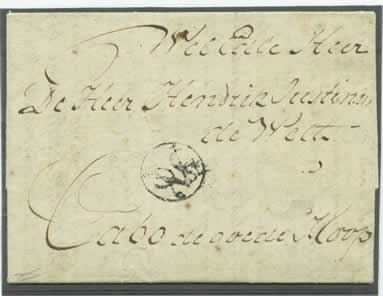 Wel Edele Heer
De Heer Hendrik Justinus
de Wett
Cabo de goede Hoop